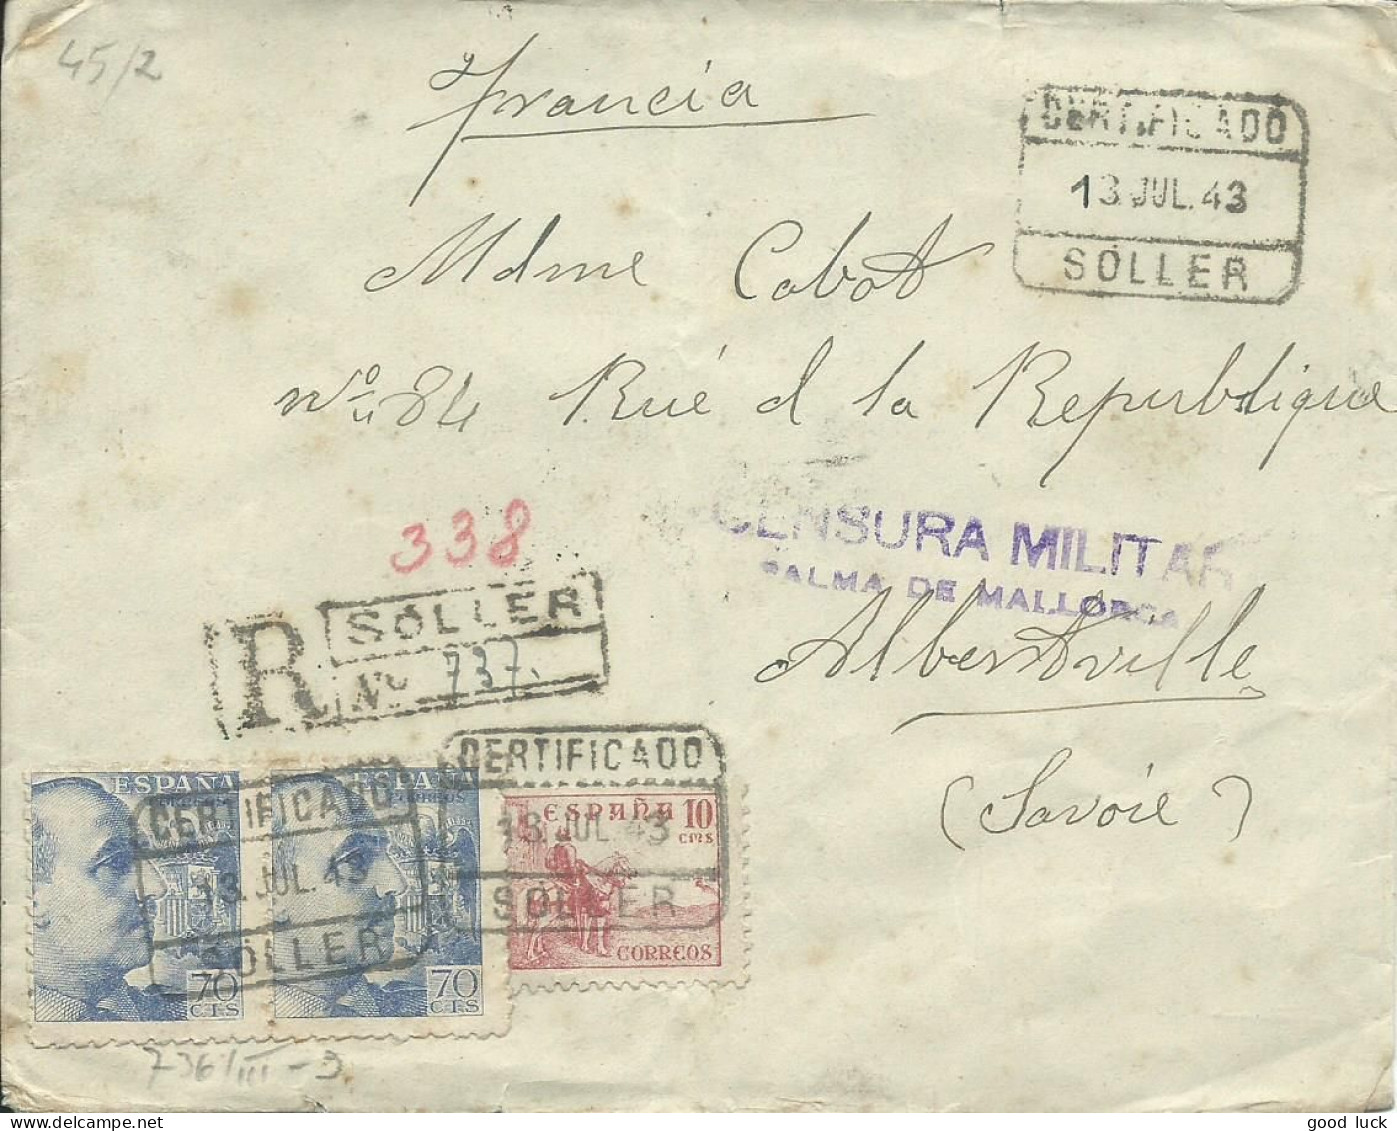 45/2
Francia
CERTIFICADO
13 JUL. 43
SOLLER
Mdme Cabot
Nº 84 Rué d la Republique
CENSURA MILITAR
PALMA DE MALLORCA
338
R
SOLLER
Nº 737.
Albertville
(Savoie)
CERTIFICADO
13 JUL 43
SOLLER
ESPAÑA
CORREOS
70
CTS
CERTIFICADO
13. JUL. 43
SOLLER
ESPAÑA
CORREOS
70
CTS
ESPAÑA 10
CMS
CORREOS
736/III-3
good luck